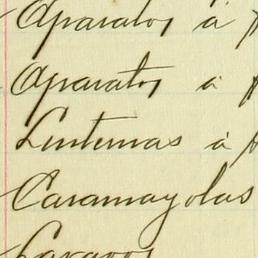 Aparatos á
Aparatos á
Linternas á
Caramayolas